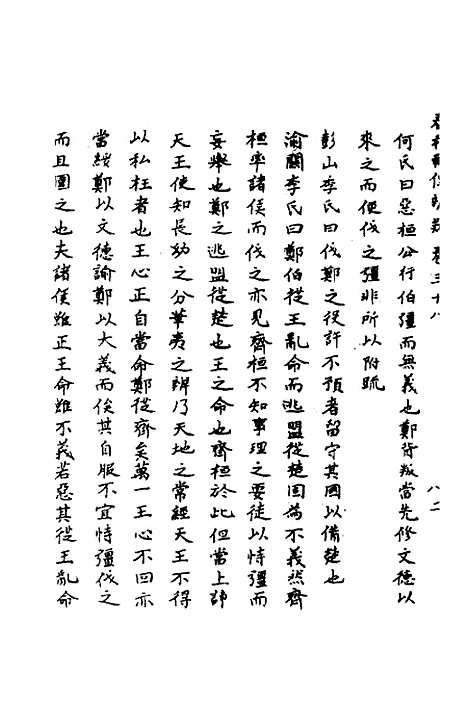 春秋輯傳辨疑 卷三十八 八二
何氏曰惡桓公行伯彊而無義也鄭背叛當先修文德以
來之而便伐之彊非所以附疏
彭山季氏曰伐鄭之役許不預者留守其國以備楚也
渝關李氏曰鄭伯從王亂命而逃盟從楚固為不義然齊
桓率諸侯而伐之亦見齊桓不知事理之要徒以恃彊而
妄舉也鄭之逃盟從楚也王之命也齊桓於此但當上諫
天王使知長幼之分華夷之辨乃天地之常經天王不得
以私枉者也王心正自當命鄭從齊矣萬一王心不回亦
當綏鄭以文德諭鄭以大義而俟其自服不宜恃彊伐之
而且圍之也夫諸侯雖正王命雖不義若惡其從王亂命